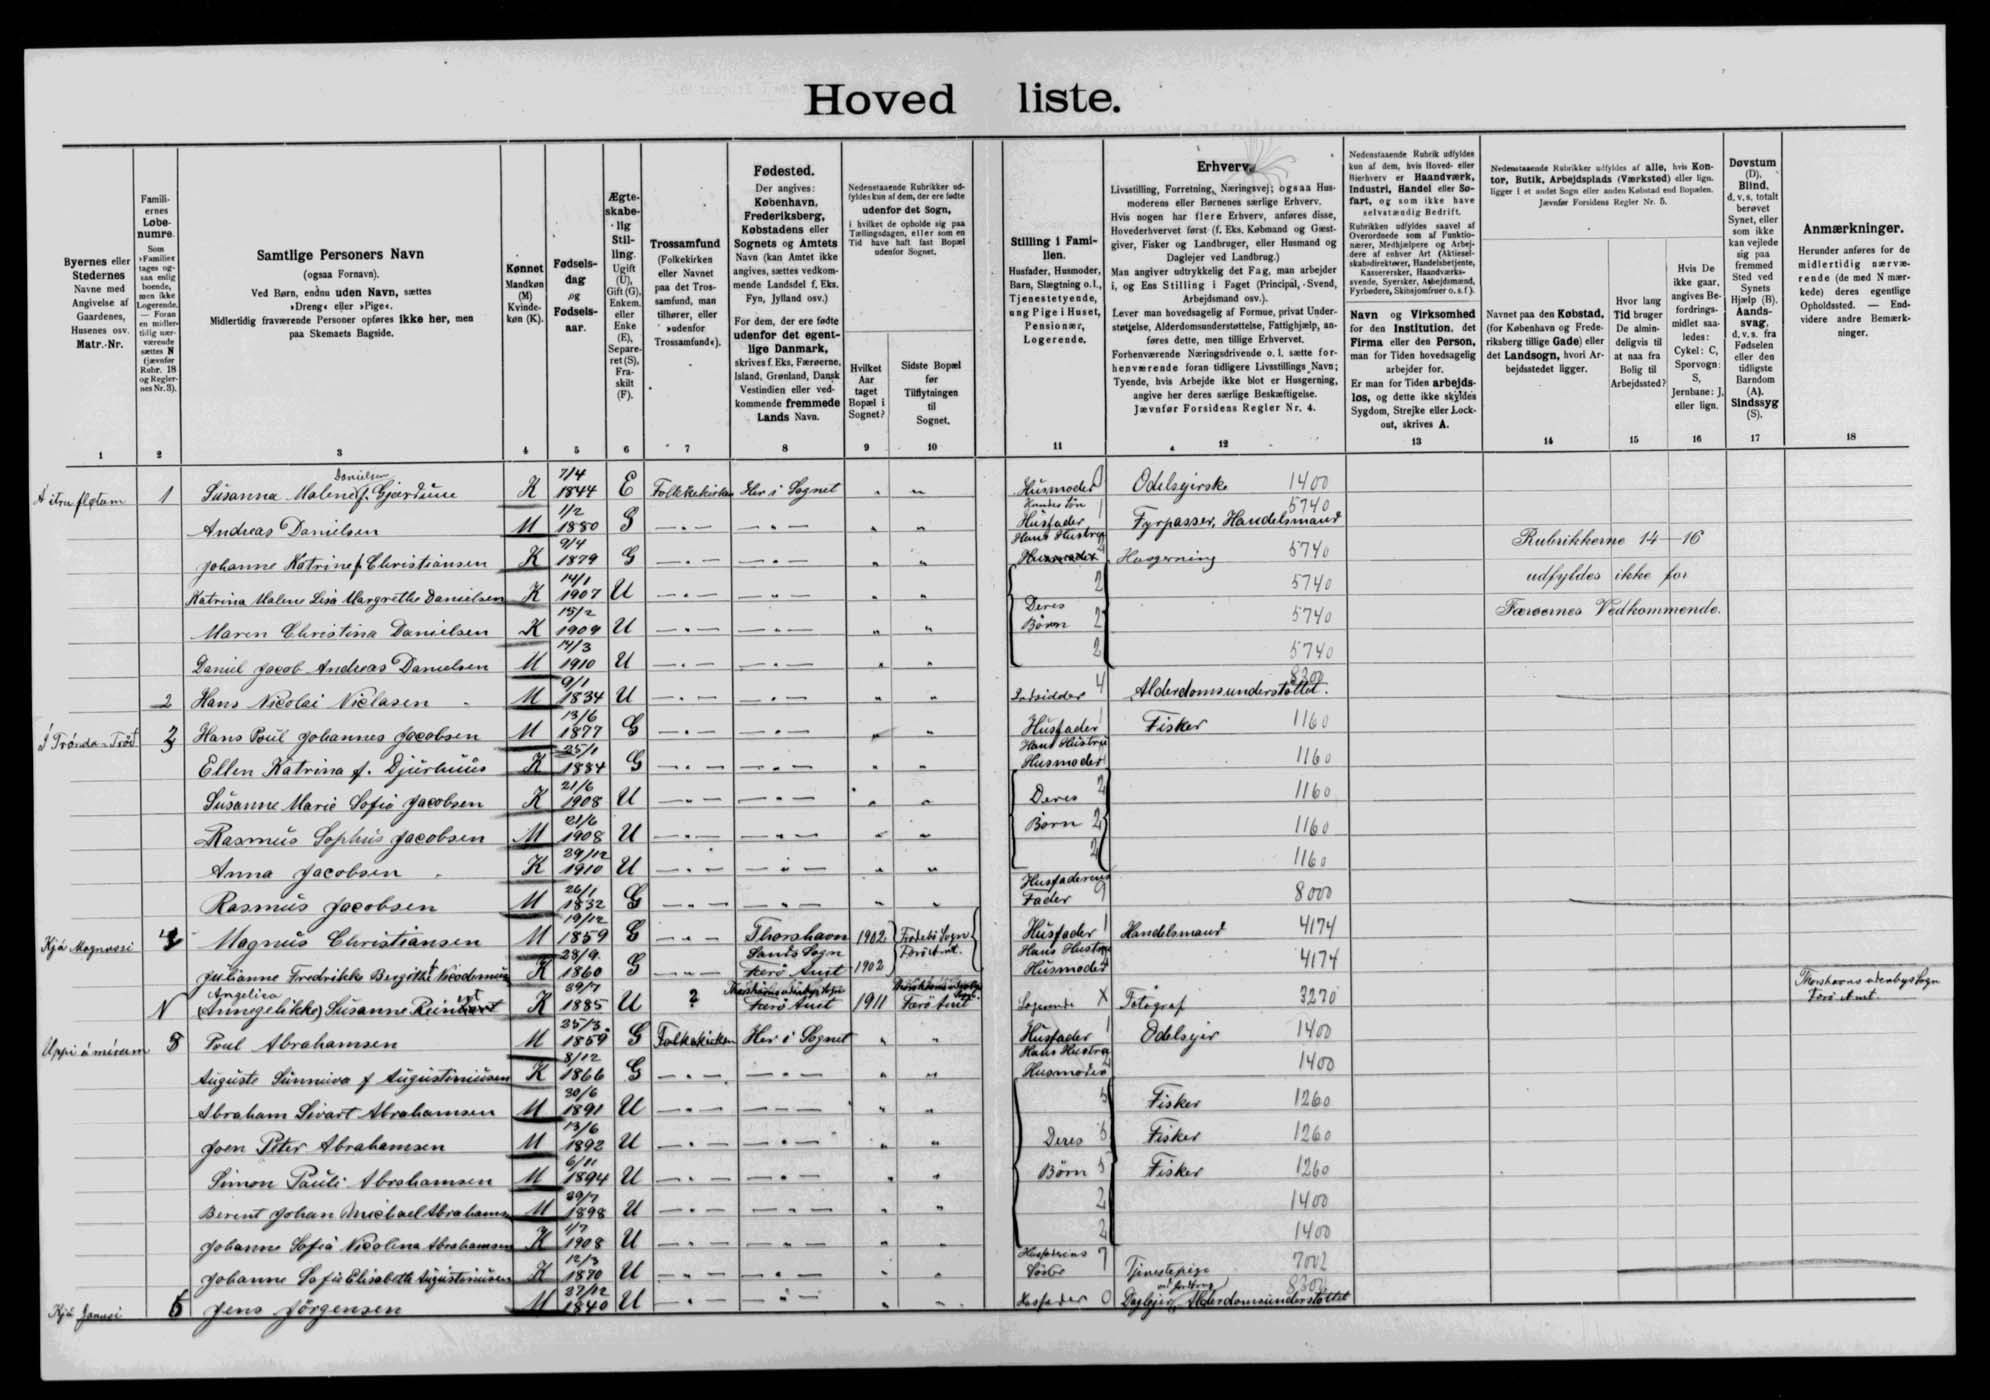 Hoved liste.
Byernes eller Stedernes Navne med Angivelse af Gaardenes, Husenes osv. Matr.-Nr.
Familiernes Løbenumre. Som »Familie« tages ogsaa enlig boende, men ikke Logerende. — Foran en midlertidig nærværende sættes N (jævnfør Rubr. 18 og Reglernes Nr. 3).
Samtlige Personers Navn
(ogsaa Fornavn).
Ved Børn, endnu uden Navn, sættes
»Dreng« eller »Pige«.
Midlertidig fraværende Personer opføres ikke her, men
paa Skemaets Bagside.
Kønnet Mandkøn (M) Kvindekøn (K).
Fødselsdag og Fødselsaar.
Ægteskabelig Stilling. Ugift (U), Gift (G), Enkem. eller Enke (E), Separeret (S), Fraskilt (F).
Trossamfund (Folkekirken eller Navnet paa det Trossamfund, man tilhører, eller »udenfor Trossamfund«).
Fødested.
Der angives: København, Frederiksberg, Købstadens eller Sognets og Amtets Navn (kan Amtet ikke angives, sættes vedkommende Landsdel f. Eks. Fyn, Jylland osv.)
For dem, der ere fødte udenfor det egentlige Danmark, skrives f. Eks. Færøerne, Island, Grønland, Dansk Vestindien eller vedkommende fremmede Lands Navn.
Nedenstaaende Rubrikker udfyldes kun af dem, der ere fødte udenfor det Sogn, i hvilket de opholde sig paa Tællingsdagen, eller som en Tid have haft fast Bopæl udenfor Sognet.
Hvilket Aar taget Bopæl i Sognet?
Sidste Bopæl før Tilflytningen til Sognet.
Stilling i Familien.
Husfader, Husmoder, Barn, Slægtning o.l., Tjenestetyende, ung Pige i Huset, Pensionær, Logerende.
Erhverv.
Livsstilling, Forretning, Næringsvej; ogsaa Husmoderens eller Børnenes særlige Erhverv.
Hvis nogen har flere Erhverv, anføres disse, Hovederhvervet først (f. Eks. Købmand og Gæstgiver, Fisker og Landbruger, eller Husmand og Daglejer ved Landbrug.)
Man angiver udtrykkelig det Fag, man arbejder i, og Ens Stilling i Faget (Principal, Svend, Arbejdsmand osv.).
Lever man hovedsagelig af Formue, privat Understøttelse, Alderdomsunderstøttelse, Fattighjælp, anføres dette, men tillige Erhvervet.
Forhenværende Næringsdrivende o. l. sætte forhenværende foran tidligere Livsstillings Navn; Tyende, hvis Arbejde ikke blot er Husgerning, angive her deres særlige Beskæftigelse.
Jævnfør Forsidens Regler Nr. 4.
Nedenstaaende Rubrik udfyldes kun af dem, hvis Hoved- eller Bierhverv er Haandværk, Industri, Handel eller Søfart, og som ikke have selvstændig Bedrift.
Rubrikken udfyldes saavel af Overordnede som af Funktionærer, Medhjælpere og Arbejdere af enhver Art (Aktieselskabsdirektører, Handelsbetjente, Kassererske, Haandværkssvende, Syersker, Arbejdsmænd, Fyrbødere, Skibsjomfruer o. s. f.).
Navn og Virksomhed for den Institution, det Firma eller den Person, man for Tiden hovedsagelig arbejder for.
Er man for Tiden arbejdsløs, og dette ikke skyldes Sygdom, Strejke eller Lockout, skrives A.
Nedenstaaende Rubrikker udfyldes af alle, hvis Kontor, Butik, Arbejdsplads (Værksted) eller lign. ligger i et andet Sogn eller anden Købstad end Bopælen.
Jævnfør Forsidens Regler Nr. 5.
Navnet paa den Købstad, (for København og Frederiksberg tillige Gade) eller det Landsogn, hvori Arbejdsstedet ligger.
Hvor lang Tid bruger De almindeligvis til at naa fra Bolig til Arbejdssted?
Hvis De ikke gaar, angives Befordringsmidlet saaledes: Cykel: C, Sporvogn: S, Jernbane: J, eller lign.
Døvstum (D), Blind, d. v. s. totalt berøvet Synet, eller som ikke kan vejlede sig paa fremmed Sted ved Synets Hjælp (B). Aandssvag, d. v. s. fra Fødselen eller den tidligste Barndom (A). Sindssyg (S).
Anmærkninger.
Herunder anføres for de midlertidig nærværende (de med N mærkede) deres egentlige Opholdssted. — Endvidere andre Bemærkninger.
1 2 3 4 5 6 7 8 9 10 11 12 13 14 15 16 17 18
Á itru fløtum 1 Susanna Malene Danielsen f. Gjærdum K 7/4 1844 E Folkekirken Her i Sognet " " Husmoder Odelsejerske 1400
Andreas Danielsen M 1/2 1880 G —"— —"— " " Kundes Søn Husfader 1 Fyrpasser, Handelsmand 5740
Johanne Katrine f. Christiansen K 9/4 1879 G —"— —"— " " Hans Hustru Husmoder Husgerning 5740
Rubrikkerne 14—16
Katrina Malene Lisa Margrethe Danielsen K 14/1 1907 U —"— —"— " " 2 5740
udfyldes ikke for
Maren Christina Danielsen K 15/2 1909 U —"— —"— " " Deres Børn 2 5740
Færøernes Vedkommende.
Daniel Jacob Andreas Danielsen M 14/3 1910 U —"— —"— " " 2 5740
2 Hans Nicolai Niclasen M 9/1 1834 U —"— —"— " " Indsidder 4 Alderdomsunderstøttet. 8300
Í Trønda-Trøð 3 Hans Poul Johannes Jacobsen M 13/6 1877 G —"— —"— " " Husfader 1 Fisker 1160
Ellen Katrina f. Djurhuus K 25/1 1884 G —"— —"— " " Hans Hustru Husmoder 1160
Susanne Marie Sofia Jacobsen K 21/6 1908 U —"— —"— " " Deres 2 1160
Rasmus Sophus Jacobsen M 21/6 1908 U —"— —"— " " Børn 2 1160
Anna Jacobsen K 29/12 1910 U —"— —"— " " 2 1160
Rasmus Jacobsen M 26/1 1832 G —"— —"— " " Husfaderens Fader 9 8000
Kjá Magnussi 4 Magnus Christiansen M 19/12 1859 G —"— Thorshavn 1902 Sogn Færö Amt. Husfader 1 Handelsmand 4174
Julianne Fredrikke Bergithe f. Nicodemus K 28/9 1860 G —"— Sands Sogn Færö Amt 1902 Hans Hustru Husmoder 4174
N Angelica (Annegelikke) Susanne K 29/7 1885 U ? Thorshavns udenbys Sogn Færö Amt 1911 Thorshavns udenbys Sogn. Færö Amt Logerende X Fotograf 3270 Thorshavns udenbys Sogn Færö Amt.
Uppi á 8 Poul Abrahamsen M 25/3 1859 G Folkekirken Her i Sognet " " Husfader 1 Odelsejer 1400
Auguste Sunneva f Augustinussen K 8/12 1866 G —"— —"— " " Hans Hustru Husmoder 1400
Abraham Sivart Abrahamsen M 30/6 1891 U —"— —"— " " 5 Fisker 1260
Joen Peter Abrahamsen M 13/6 1892 U —"— —"— " " Deres 5 Fisker 1260
Simon Pauli Abrahamsen M 6/11 1894 U —"— —"— " " Børn 5 Fisker 1260
Berent Johan Michael Abrahamsen M 29/7 1898 U —"— —"— " " 2 1400
Johanne Sofia Nicolina Abrahamsen K 1/7 1908 U —"— —"— " " 2 1400
Johanne Sofie Elisabeth Augustinussen K 12/3 1870 U —"— —"— " " Husfaderens Søster 7 Tjenestepige 7002
Kjá Janusi 6 Jens Jörgensen M 27/12 1840 U —"— —"— " " Husfader 0 Daglejer ved Jordbrug Alderdomsunderstøttet 8300